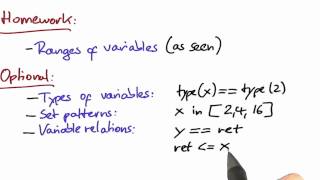 Homework:
- Ranges of variables (as seen)
Optional:
- Types of variables: type(x) == type(2)
- Set patterns: x in [2,4, 16]
- Variable relations: y == ret
ret <= x